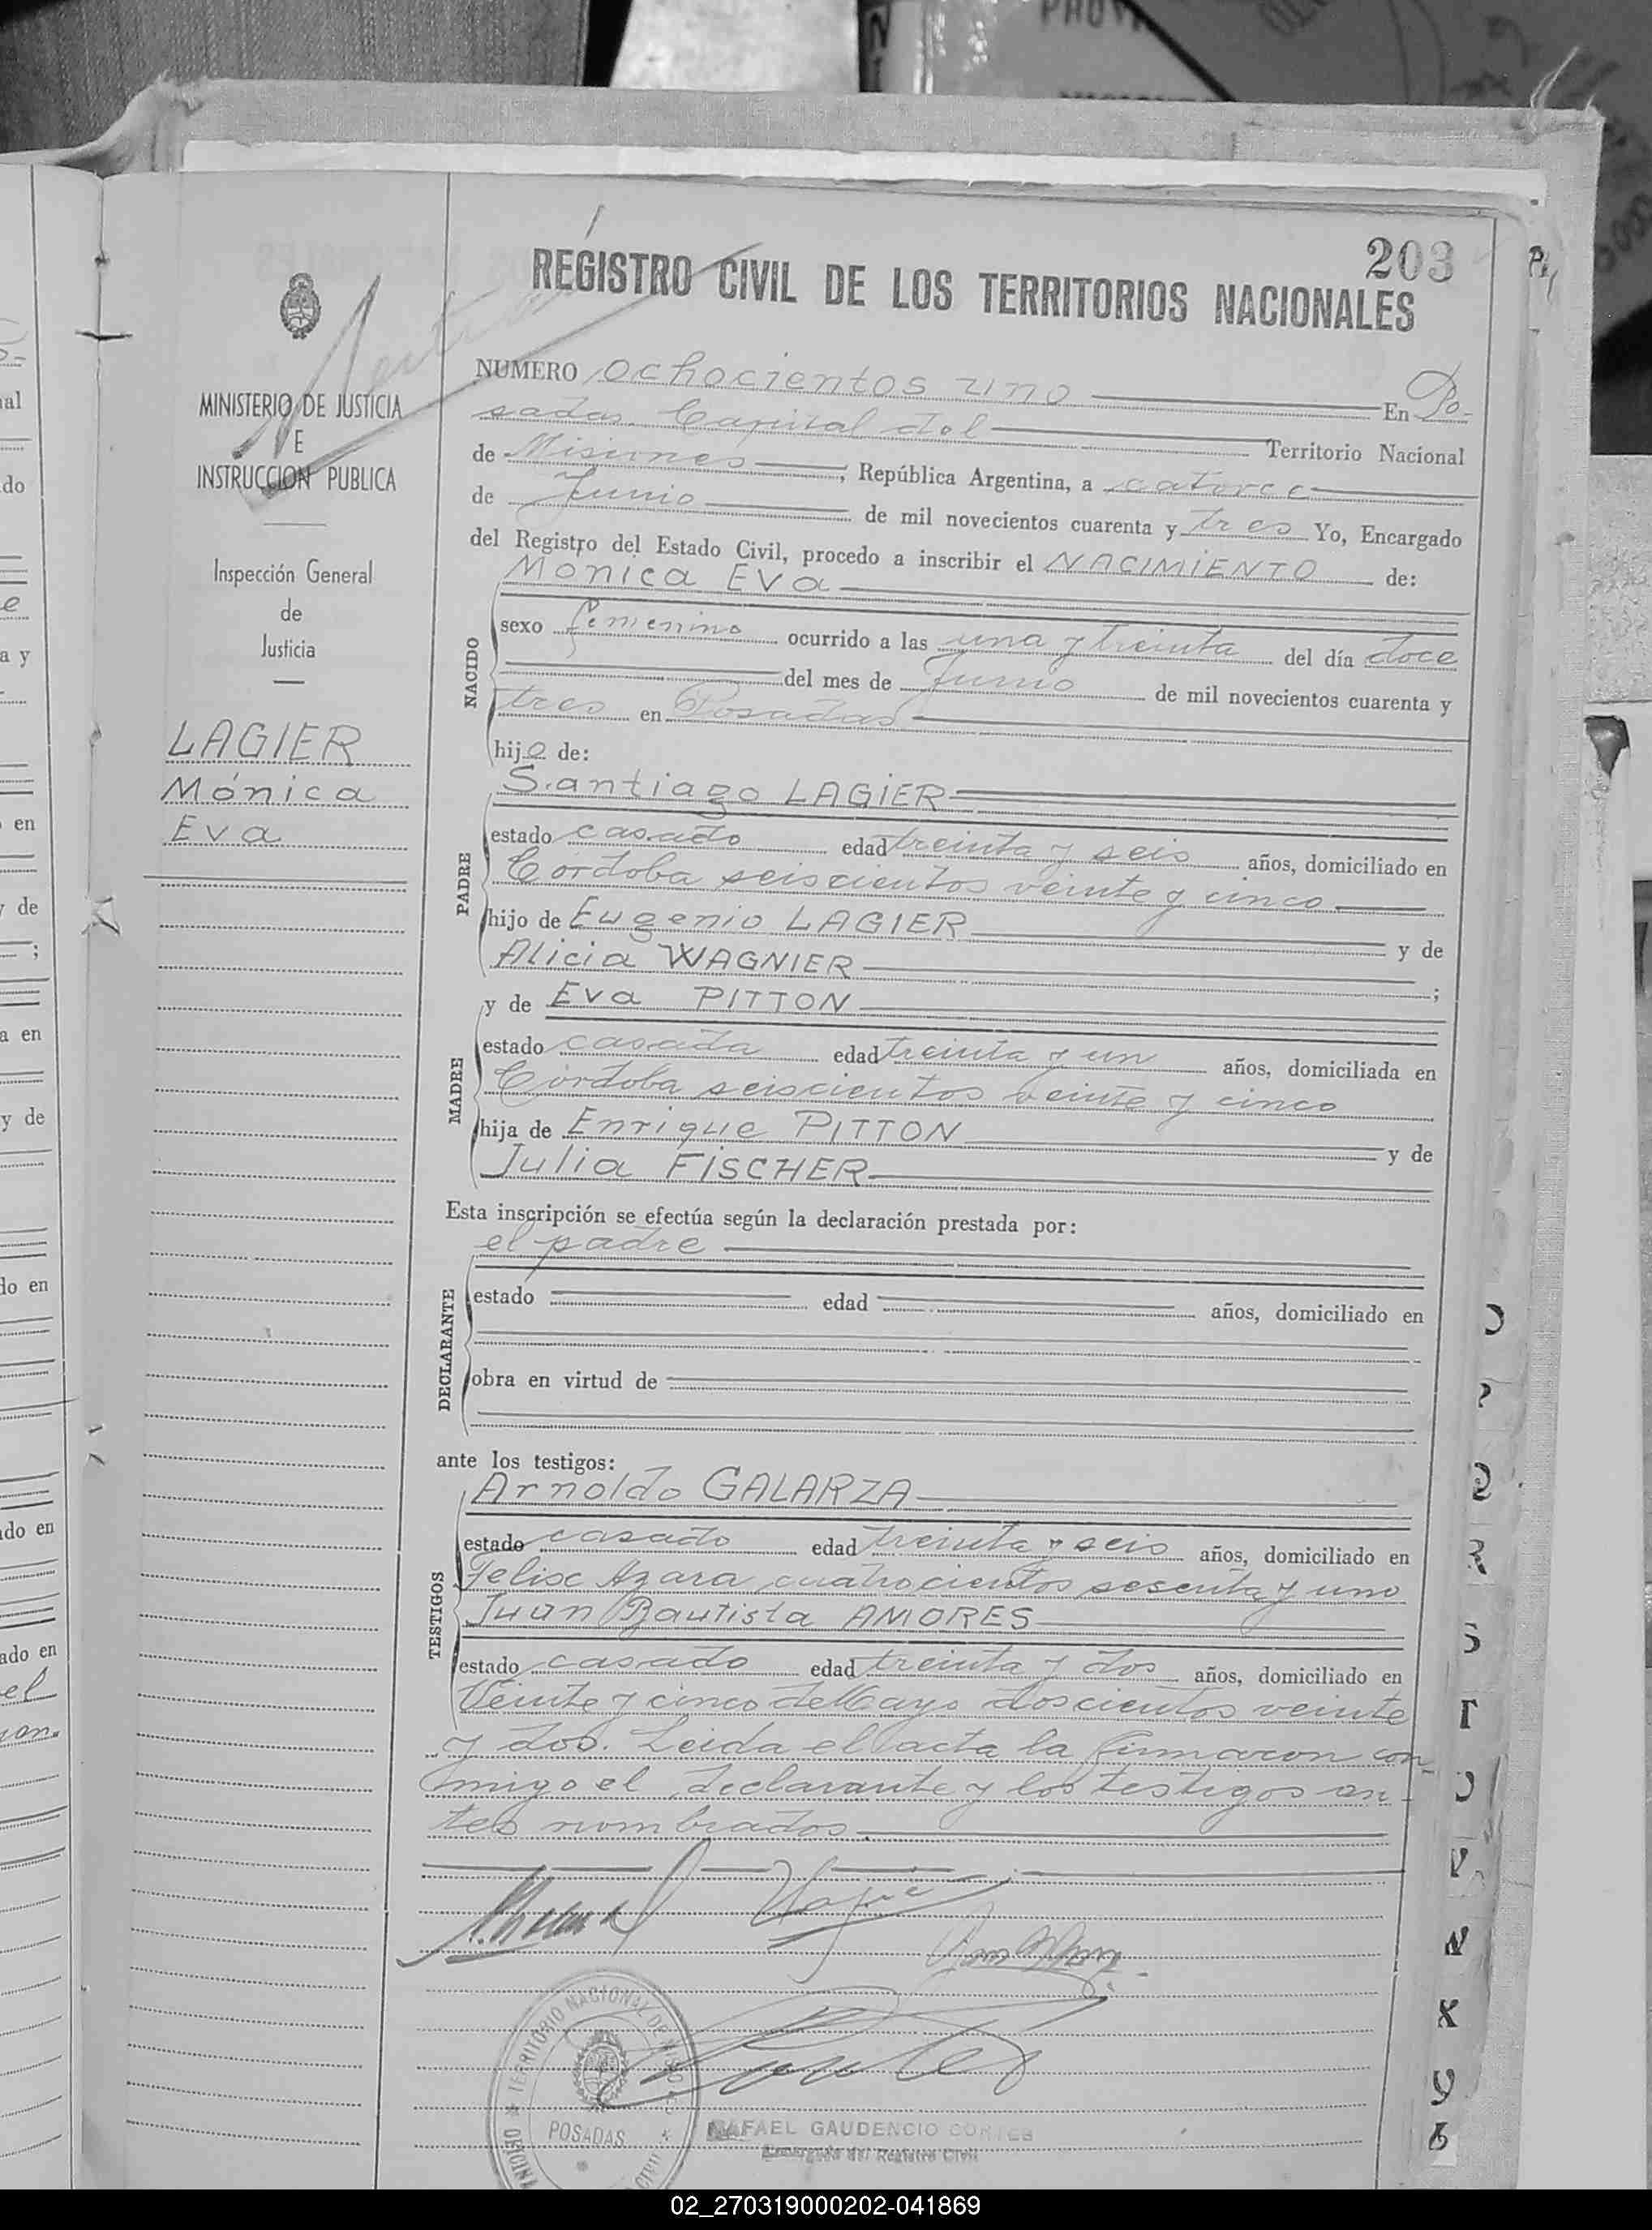 203
REGISTRO CIVIL DE LOS TERRITORIOS NACIONALES
MINISTERIO DE JUSTICIA
E
INSTRUCCION PUBLICA
Inspección General
de
Justicia
LAGIER
Mónica
Eva
NUMERO ochocientos uno En Po-
sadas Capital del Territorio Nacional
de Misiones, República Argentina, a catorce
de Junio de mil novecientos cuarenta y tres Yo, Encargado
del Registro del Estado Civil, procedo a inscribir el NACIMIENTO de:
Mónica Eva
NACIDO
sexo femenino ocurrido a las una y treinta del día doce
del mes de Junio de mil novecientos cuarenta y
tres en Posadas
hija de:
Santiago LAGIER
PADRE
estado casado edad treinta y seis años, domiciliado en
Córdoba seiscientos veinte y cinco
hijo de Eugenio LAGIER y de
Alicia WAGNIER ;
y de Eva PITTON
MADRE
estado casada edad treinta y un años, domiciliada en
Córdoba seiscientos veinte y cinco
hija de Enrique PITTON y de
Julia FISCHER
Esta inscripción se efectúa según la declaración prestada por:
el padre
DECLARANTE
estado edad años, domiciliado en
obra en virtud de
ante los testigos:
Arnoldo GALARZA
TESTIGOS
estado casado edad treinta y seis años, domiciliado en
Felix Azara cuatrocientos sesenta y uno
Juan Bautista AMORES
estado casado edad treinta y dos años, domiciliado en
Veinte y cinco de Mayo doscientos veinte
y dos. Leida el acta la firmaron con-
migo el declarante y los testigos an-
tes nombrados.
TERRITORIO NACIONAL DE MISIONES
OFICINA
POSADAS
RAFAEL GAUDENCIO CORTES
Encargado del Registro Civil
02_270319000202-041869